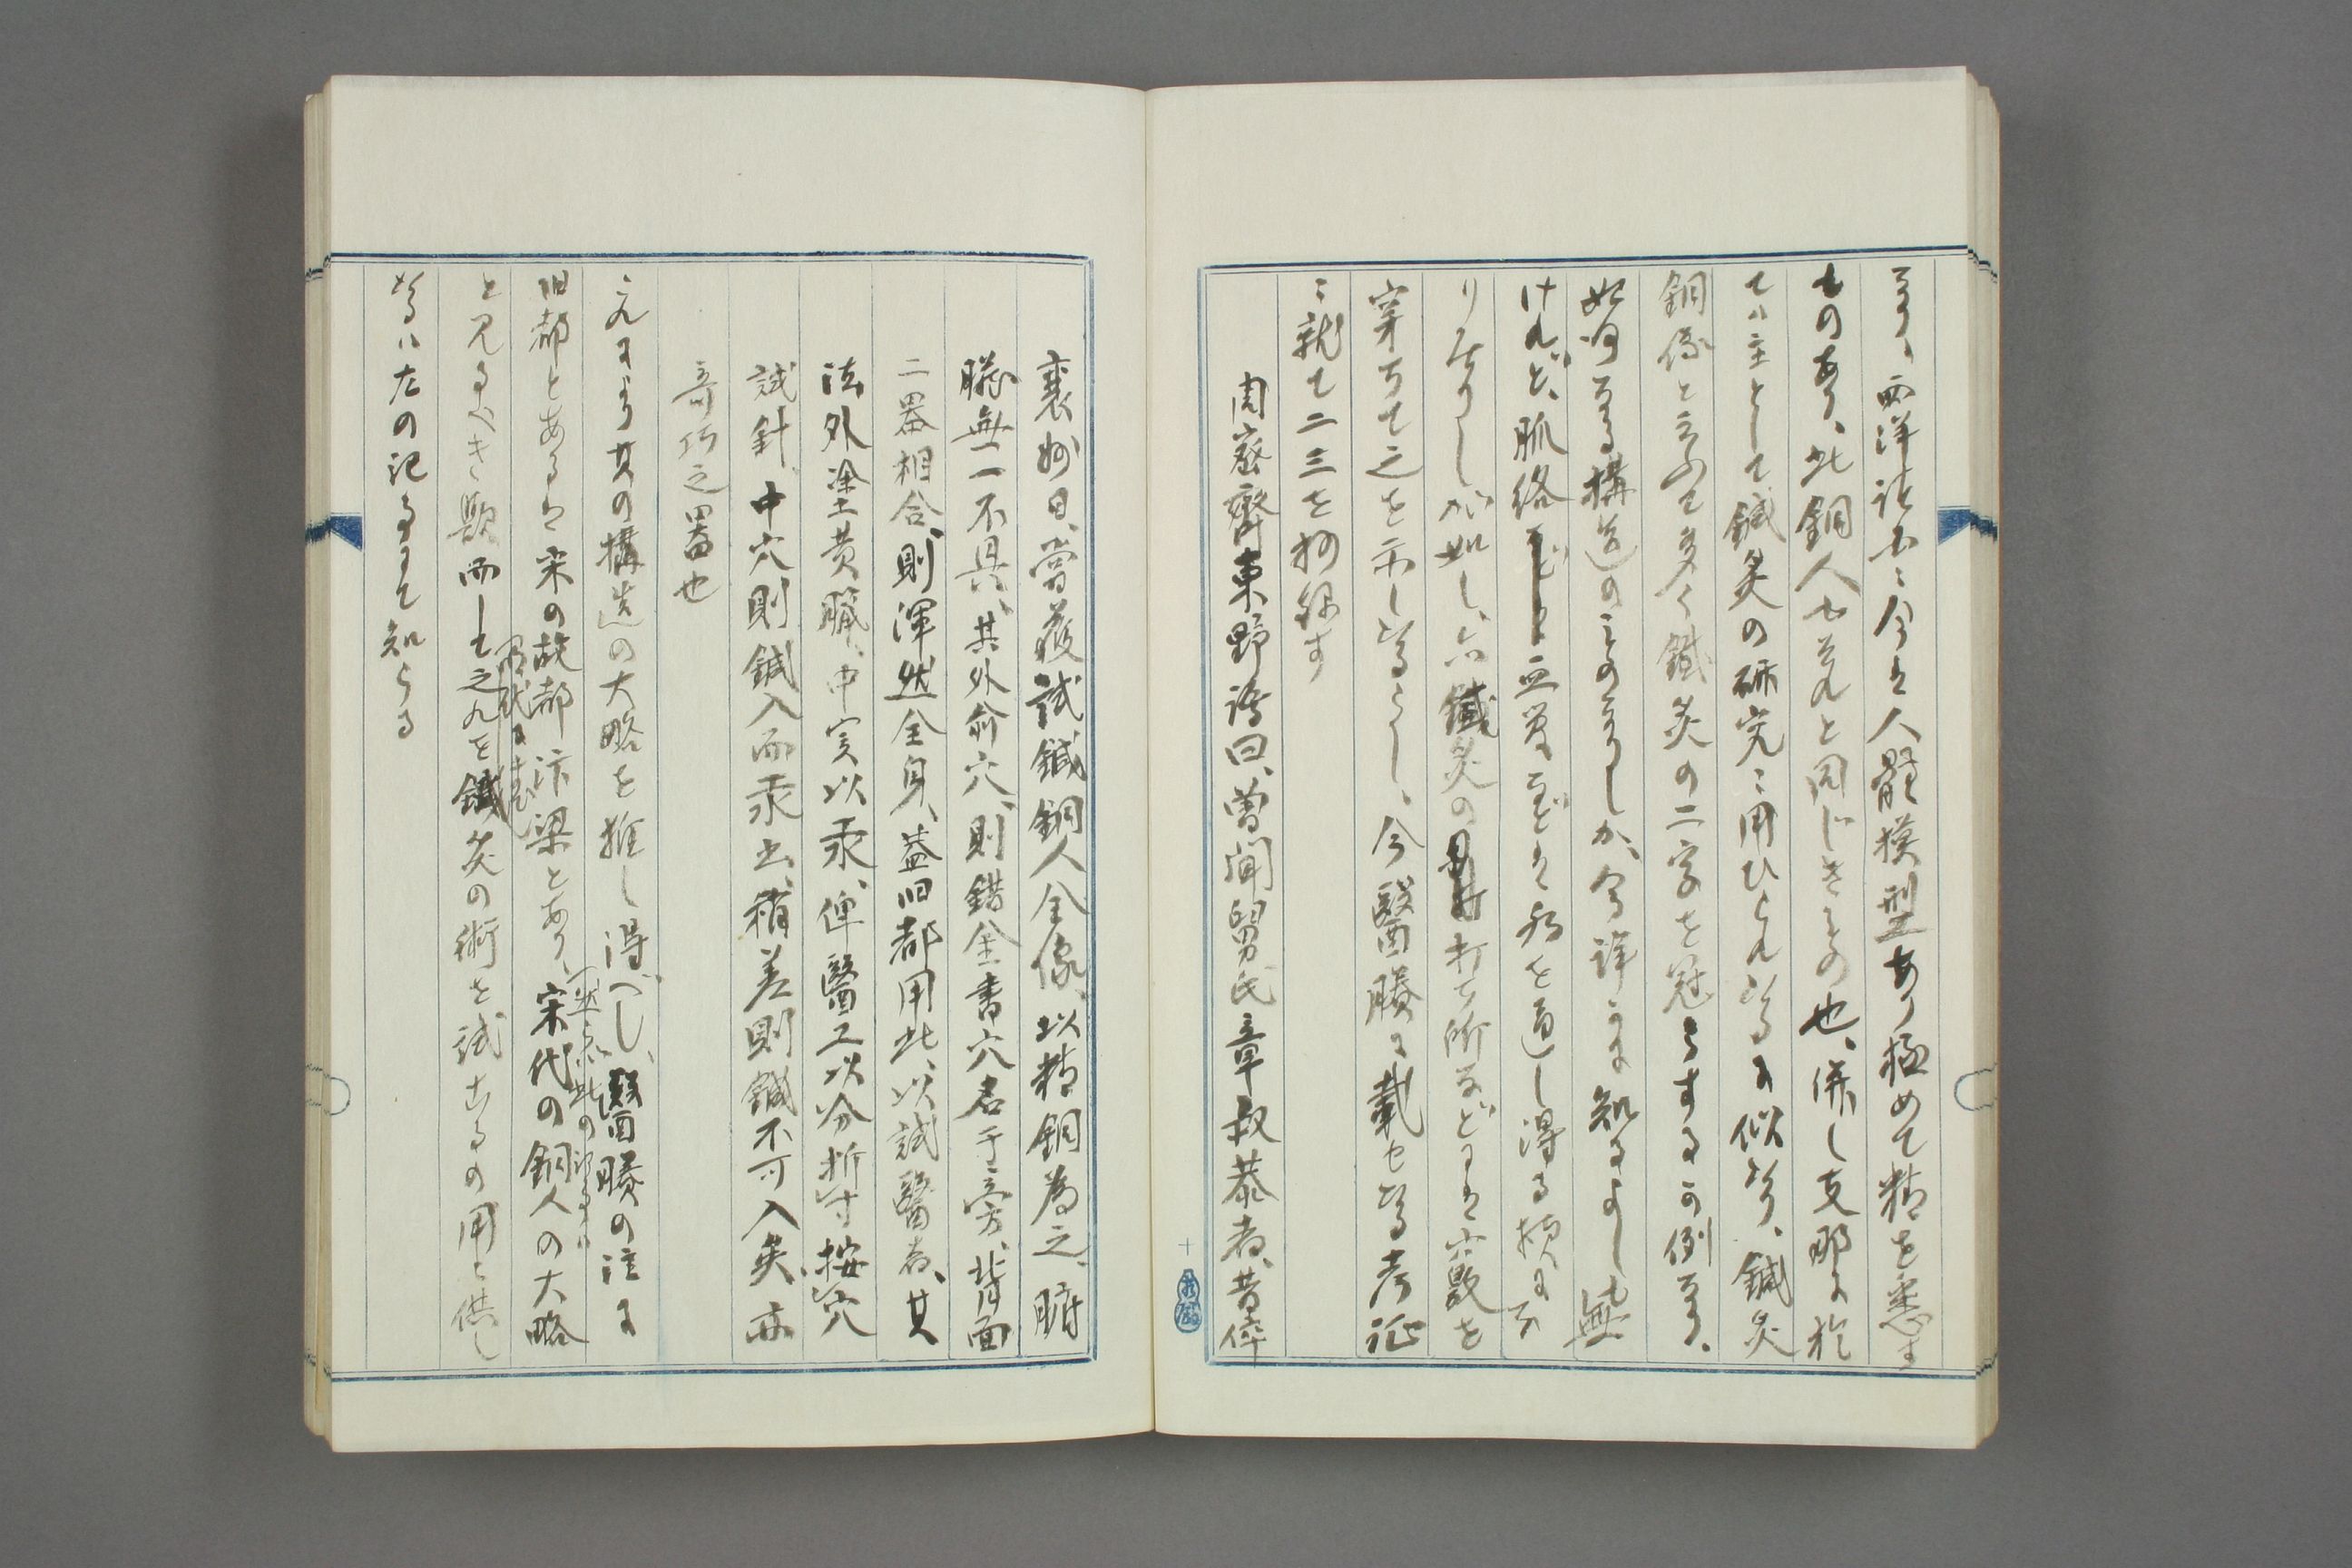 なり、西洋諸国に今は人體模型あり極めて精を悉す
ものあり、此銅人もそれと同じきもの也、併し支那に於
ては主として鍼灸の研究に用ひられたるに似たり、鍼灸
銅像と云ふて多く鍼灸の二字を冠らするの例なり、
如何なる構造のものなりしか、今詳かに知るよし無
けれど、脈絡血管などは水を通し得る様に
りありしが如し、鍼灸の打つ所などには穴を
穿ちて之を示したるらし、今醫賸に載せたる考証
に就て二三を抄録す
周密齊東野語曰、嘗聞舅氏章叔恭者、昔倅
襄州日、嘗獲試鍼銅人全像、以精銅為之、腑
臓無一不具、其外俞穴、則錯金書穴名于旁、背面
二器相合、則渾然全身、蓋旧都用此、以試醫者、其
法外塗黄臘、中実以汞、俾醫工以分折寸按穴
試針、中穴則鍼入而汞出、稍差則鍼不可入矣、亦
奇巧之器也
これにより其の構造の大略を推し得べし、醫賸の註に
旧都とあるは宋の故都汴梁とあり、宋代の銅人の大略
と見るべき歟而して之れを鍼灸の術を試むるの用に供し
たるは左の記事にて知らる